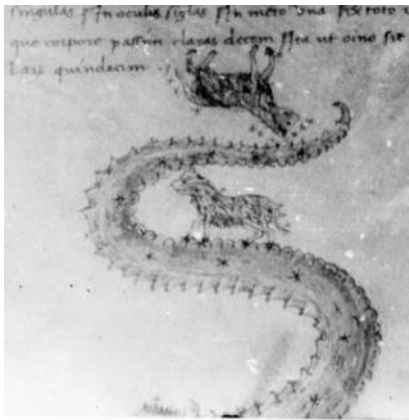 singulas in oculis siglas in mero una toto
que corpore passim claras decem ut oino sit
quindecim .